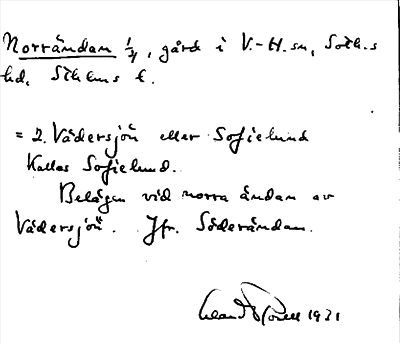 Norrändan 1/4, gård i V.-H. sn, Soth.s
hd, Sthlms l.
= 2. Vädersjön eller Sofielund
Kallas Sofielund.
Belägen vid norra ändan av
Vädersjön. Jfr. Söderändan.
1931